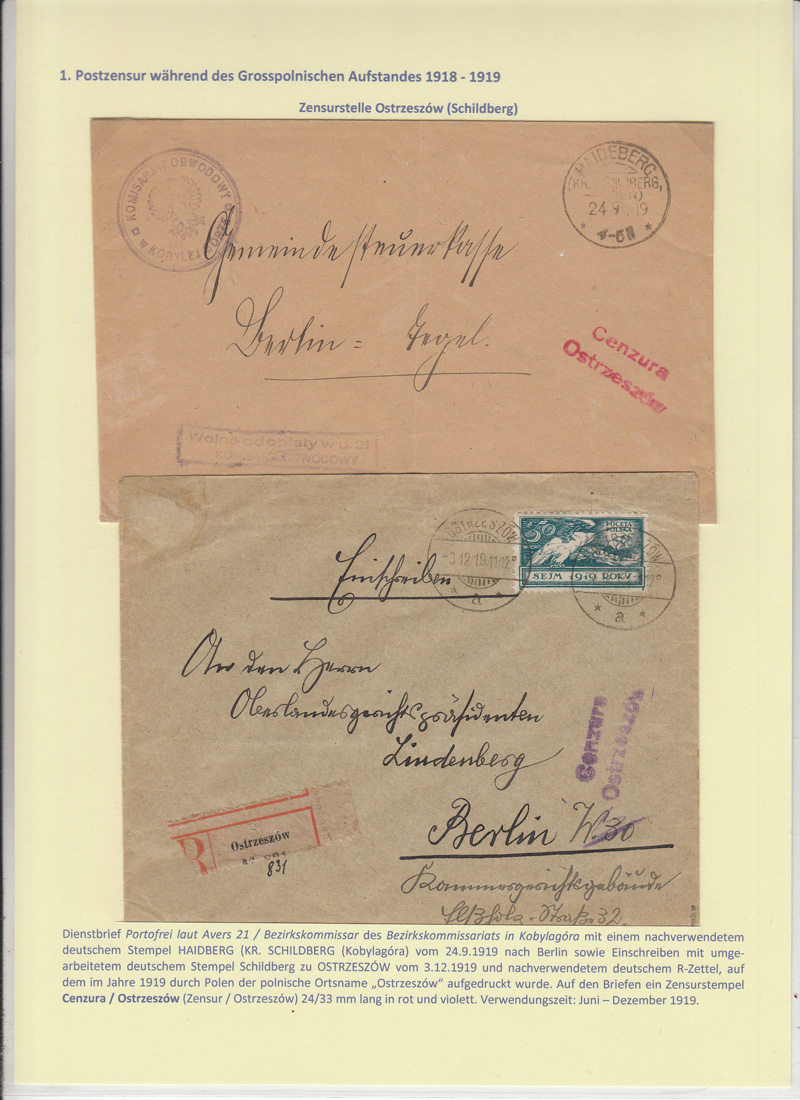 1. Postzensur während des Grosspolnischen Aufstandes 1918 - 1919
Zensurstelle Ostrzeszów (Schildberg)
KOMISARJAT OBWODOWY
W KOBYLEJ
HAIDEBERG
(KR. SCHILDBERG,
24 9 19
Gemeindesteuerkasse
Berlin = Tegel.
Cenzura
Ostrzeszów
Wolne od opłaty w u. 21
KOMISARZ OBWODOWY
OSTRZESZÓW
-3.12.19.11-12⁰
a
50
POCZTA
POLSKA
SEJM 1919 ROKU
a
Einschreiben
An den Herrn
Oberlandesgerichtspräsidenten
Lindenberg
Cenzura
Ostrzeszów
R
Ostrzeszów
831
Berlin W.30
Kammergerichtsgebäude
Elßholz-Straße 32.
Dienstbrief Portofrei laut Avers 21 / Bezirkskommissar des Bezirkskommissariats in Kobylagóra mit einem nachverwendetem
deutschem Stempel HAIDBERG (KR. SCHILDBERG (Kobylagóra) vom 24.9.1919 nach Berlin sowie Einschreiben mit umge-
arbeitetem deutschem Stempel Schildberg zu OSTRZESZÓW vom 3.12.1919 und nachverwendetem deutschem R-Zettel, auf
dem im Jahre 1919 durch Polen der polnische Ortsname „Ostrzeszów“ aufgedruckt wurde. Auf den Briefen ein Zensurstempel
Cenzura / Ostrzeszów (Zensur / Ostrzeszów) 24/33 mm lang in rot und violett. Verwendungszeit: Juni – Dezember 1919.